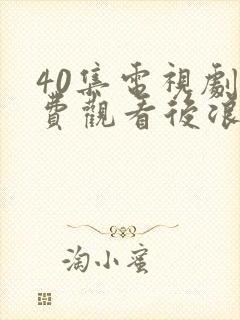 40集電視劇
費觀看後浪
淘小蜜